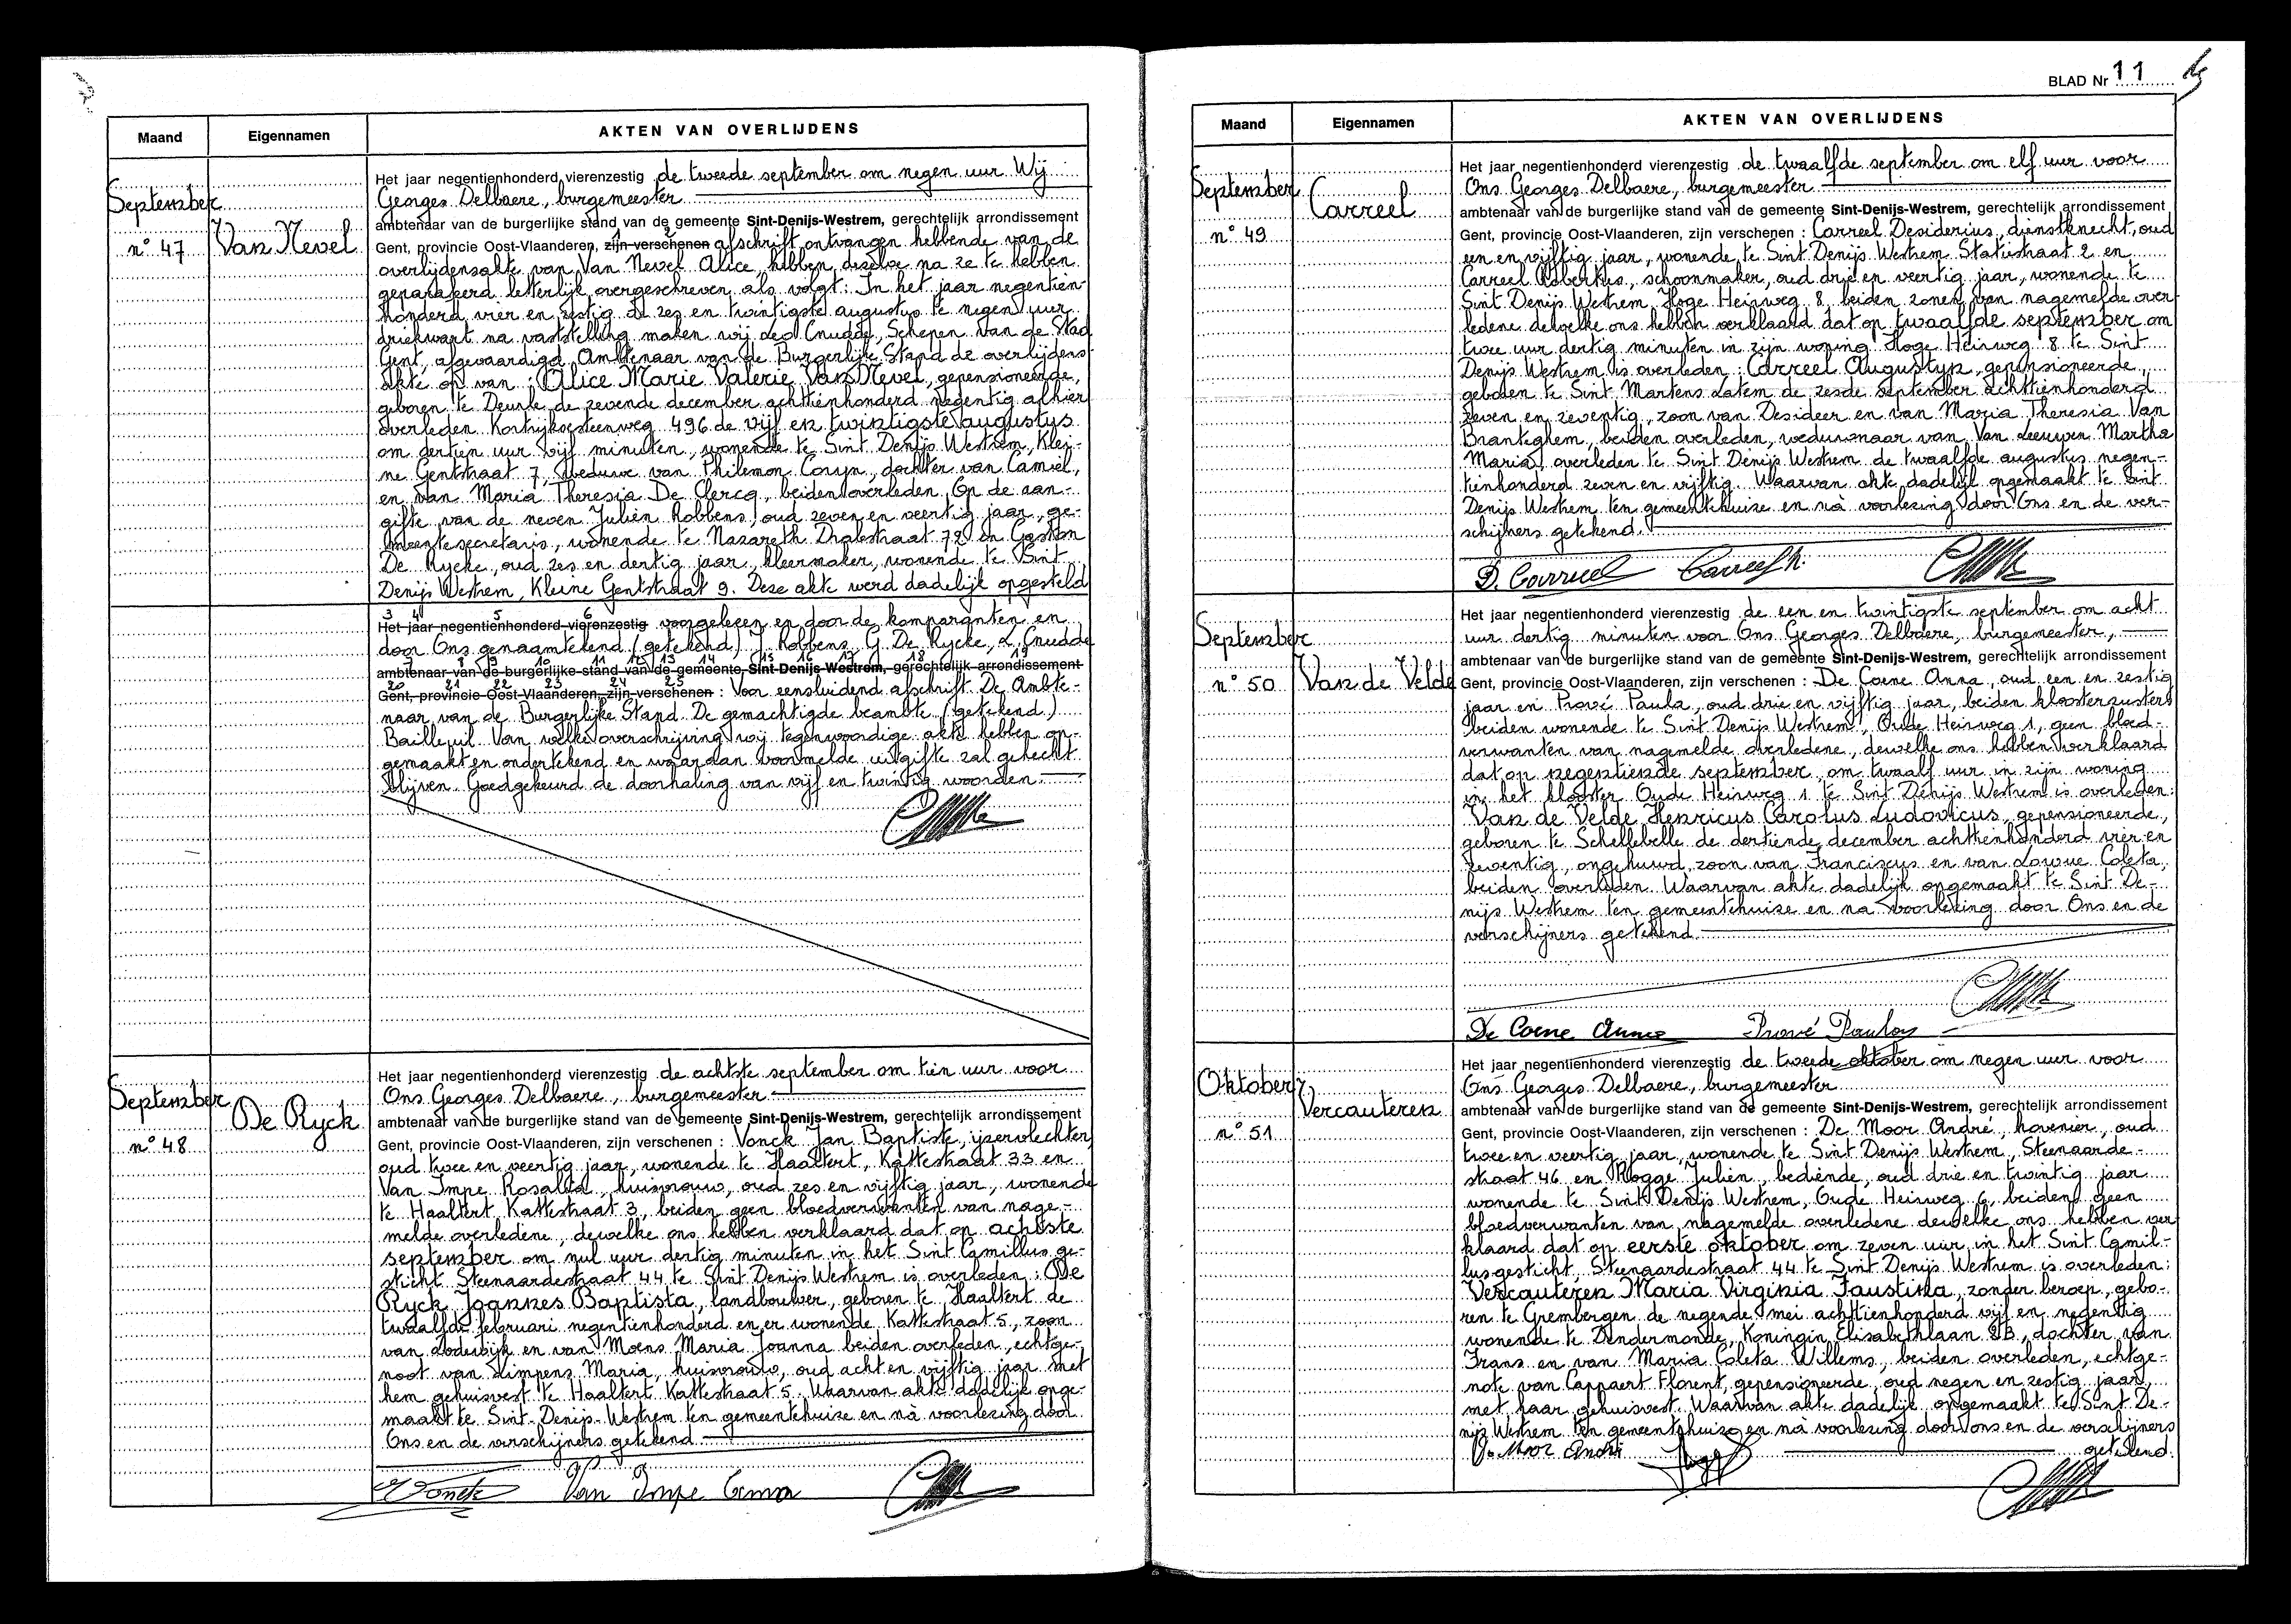 Maand Eigennamen AKTEN VAN OVERLIJDENS
September
n° 47 Van Nevel
Het jaar negentienhonderd vierenzestig de tweede september om negen uur Wij
Georges Delbaere, burgemeester
ambtenaar van de burgerlijke stand van de gemeente Sint-Denijs-Westrem, gerechtelijk arrondissement
Gent, provincie Oost-Vlaanderen, zijn verschenen afschrift ontvangen hebbende van de
overlijdensakte van Van Nevel Alice, hebben dezelve na ze te hebben
geparafeerd letterlijk overgeschreven als volgt: In het jaar negentien-
honderd vier en zestig de zes en twintigste augustus te negen uur
driekwart na vaststelling maken wij Leo Cnudde, Schepen van de Stad
Gent, afgevaardigd Ambtenaar van de Burgerlijke Stand de overlijdens-
akte op van : Alice Marie Valerie Van Nevel, gepensioneerde,
geboren te Deurle de zevende december achttienhonderd negentig alhier
overleden Kortrijksesteenweg 496 de vijf en twintigste augustus
om dertien uur vijf minuten, wonende te Sint Denijs Westrem, Klei-
ne Gentstraat 7, weduwe van Philemon Coryn, dochter van Camiel,
en van Maria Theresia De Clercq, beiden overleden. Op de aan-
gifte van de neven Julien Robbens, oud zeven en veertig jaar, ge-
meentesecretaris, wonende te Nazareth Dralestraat 72 en Gaston
De Rycke, oud zes en dertig jaar, kleermaker, wonende te Sint
Denijs Westrem, Kleine Gentstraat 9. Deze akte werd dadelijk opgesteld
3 4 5 6
Het jaar negentienhonderd vierenzestig voorgelezen en door de komparanten en
door Ons genaamtekend (getekend) J. Robbens, G. De Rycke, L. Cnudde
7 8 9 10 11 12 13 14 15 16 17 18 19
ambtenaar van de burgerlijke stand van de gemeente Sint-Denijs-Westrem, gerechtelijk arrondissement
20 21 22 23 24 25
Gent, provincie Oost-Vlaanderen, zijn verschenen : Voor eensluidend afschrift. De Ambte-
naar van de Burgerlijke Stand. De gemachtigde beambte (getekend)
Bailleuil. Van welke overschrijving wij tegenwoordige akte hebben op-
gemaakt en ondertekend en waaraan voormelde uitgifte zal gehecht
blijven. Goedgekeurd de doorhaling van vijf en twintig woorden.
September
De Ryck
n° 48
Het jaar negentienhonderd vierenzestig de achtste september om tien uur voor
Ons Georges Delbaere, burgemeester
ambtenaar van de burgerlijke stand van de gemeente Sint-Denijs-Westrem, gerechtelijk arrondissement
Gent, provincie Oost-Vlaanderen, zijn verschenen : Vonck Jan Baptiste, ijzervlechter,
oud twee en veertig jaar, wonende te Haaltert, Kattestraat 33 en
Van Impe Rosalia, huisvrouw, oud zes en vijftig jaar, wonende
te Haaltert Kattestraat 3, beiden geen bloedverwanten van nage-
melde overledene, dewelke ons hebben verklaard dat op achtste
september om nul uur dertig minuten in het Sint Camillus ge-
sticht Steenaardestraat 44 te Sint Denijs Westrem is overleden : De
Ryck Joannes Baptista, landbouwer, geboren te Haaltert de
twaalfde februari negentienhonderd en er wonende Kattestraat 5, zoon
van Lodewijk en van Moens Maria Joanna beiden overleden, echtge-
noot van Limpens Maria, huisvrouw, oud acht en vijftig jaar met
hem gehuisvest te Haaltert Kattestraat 5. Waarvan akte dadelijk opge-
maakt te Sint-Denijs-Westrem ten gemeentehuize en nà voorlezing door
Ons en de verschijners getekend
Vonck Van Impe
BLAD Nr 11
Maand Eigennamen AKTEN VAN OVERLIJDENS
September
Carreel
n° 49
Het jaar negentienhonderd vierenzestig de twaalfde september om elf uur voor
Ons Georges Delbaere, burgemeester
ambtenaar van de burgerlijke stand van de gemeente Sint-Denijs-Westrem, gerechtelijk arrondissement
Gent, provincie Oost-Vlaanderen, zijn verschenen : Carreel Desiderius, dienstknecht, oud
een en vijftig jaar, wonende te Sint Denijs Westrem Statiestraat 2 en
Carreel Robertus, schoonmaker, oud drie en veertig jaar, wonende te
Sint Denijs Westrem, Hoge Heirweg 8, beiden zonen van nagemelde over-
ledene dewelke ons hebben verklaard dat op twaalfde september om
twee uur dertig minuten in zijn woning Hoge Heirweg 8 te Sint
Denijs Westrem is overleden : Carreel Augustyn, gepensioneerde,
geboren te Sint Martens Latem de zesde september achttienhonderd
zeven en zeventig, zoon van Desideer en van Maria Theresia Van
Branteghem, beiden overleden, weduwnaar van Van Leeuwen Martha
Maria, overleden te Sint Denijs Westrem de twaalfde augustus negen-
tienhonderd zeven en vijftig. Waarvan akte dadelijk opgemaakt te Sint
Denijs Westrem ten gemeentehuize en nà voorlezing door Ons en de ver-
schijners getekend.
D. Carreel Carreel R.
September
n° 50 Van de Velde
Het jaar negentienhonderd vierenzestig de een en twintigste september om acht
uur dertig minuten voor Ons Georges Delbaere, burgemeester,
ambtenaar van de burgerlijke stand van de gemeente Sint-Denijs-Westrem, gerechtelijk arrondissement
Gent, provincie Oost-Vlaanderen, zijn verschenen : De Coene Anna, oud een en zestig
jaar en Prové Paula, oud drie en vijftig jaar, beiden kloosterzusters
beiden wonende te Sint Denijs Westrem, Oude Heirweg 1, geen bloed-
verwanten van nagemelde overledene, dewelke ons hebben verklaard
dat op negentiende september, om twaalf uur in zijn woning
in het klooster Oude Heirweg 1 te Sint Denijs Westrem is overleden:
Van de Velde Henricus Carolus Ludovicus, gepensioneerde,
geboren te Schellebelle de dertiende december achttienhonderd vier en
zeventig, ongehuwd, zoon van Franciscus en van Louwe Coleta,
beiden overleden. Waarvan akte dadelijk opgemaakt te Sint De-
nijs Westrem ten gemeentehuize en na voorlezing door Ons en de
verschijners getekend
De Coene Anna Prové Paula
Oktober
Vercauteren
n° 51
Het jaar negentienhonderd vierenzestig de tweede oktober om negen uur voor
Ons Georges Delbaere, burgemeester
ambtenaar van de burgerlijke stand van de gemeente Sint-Denijs-Westrem, gerechtelijk arrondissement
Gent, provincie Oost-Vlaanderen, zijn verschenen : De Moor André, hovenier, oud
twee en veertig jaar, wonende te Sint Denijs Westrem, Steenaarde-
straat 46 en Rogge Julien, bediende, oud drie en twintig jaar
wonende te Sint Denijs Westrem, Oude Heirweg 6, beiden geen
bloedverwanten van nagemelde overledene dewelke ons hebben ver
klaard dat op eerste oktober om zeven uur in het Sint Camil-
lusgesticht, Steenaardestraat 44 te Sint Denijs Westrem is overleden:
Vercauteren Maria Virginia Faustina, zonder beroep, gebo-
ren te Grembergen de negende mei achttienhonderd vijf en negentig
wonende te Dendermonde, Koningin Elisabethlaan 8B, dochter van
Frans en van Maria Coleta Willems, beiden overleden, echtge-
note van Cappaert Florent, gepensioneerde, oud negen en zestig jaar,
met haar gehuisvest. Waarvan akte dadelijk opgemaakt te Sint De-
nijs Westrem ten gemeentehuize en nà voorlezing door Ons en de verschijners
De Moor André getekend.